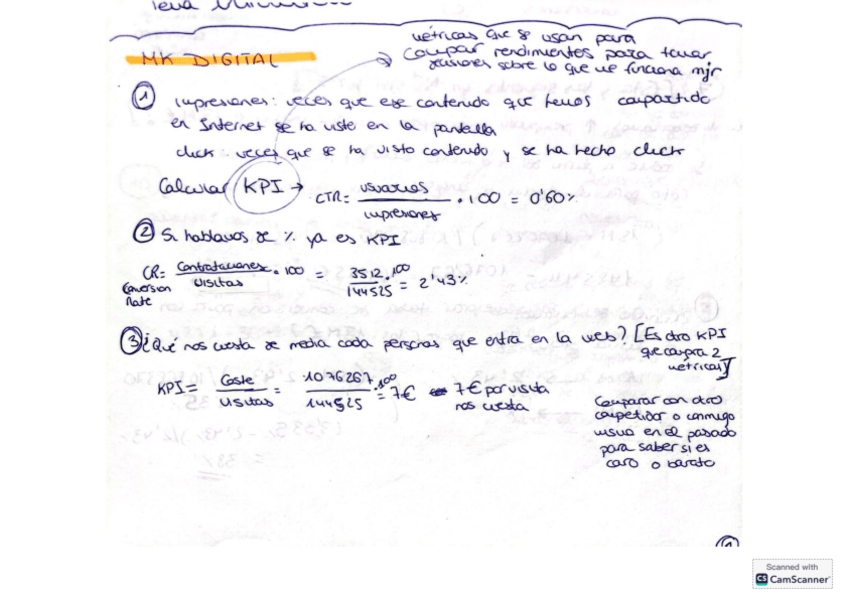 MK DIGITAL
métricas que se usan para
compar rendimientos para tomar
decisiones sobre lo que me funciona mjr
① impresiones: veces que ese contenido que hemos compartido
en Internet se ha visto en la pantalla
click: veces que se ha visto contenido y se ha hecho click
Calcular KPI → CTR = usuarios / impresiones · 100 = 0'60%
② Si hablamos de % ya es KPI
CR = Contrataciones / visitas · 100 = 3512 · 100 / 144525 = 2'43%
Conversion
Rate
③ ¿Qué nos cuesta de media cada personas que entra en la web? [Es otro KPI
que compra 2
métricas]
KPI = Coste / visitas = 1076267 · 100 / 144525 = 7€ 7€ por visita
nos cuesta
Comparar con otro
competidor o conmigo
misma en el pasado
para saber si es
caro o barato
Scanned with
CS CamScanner